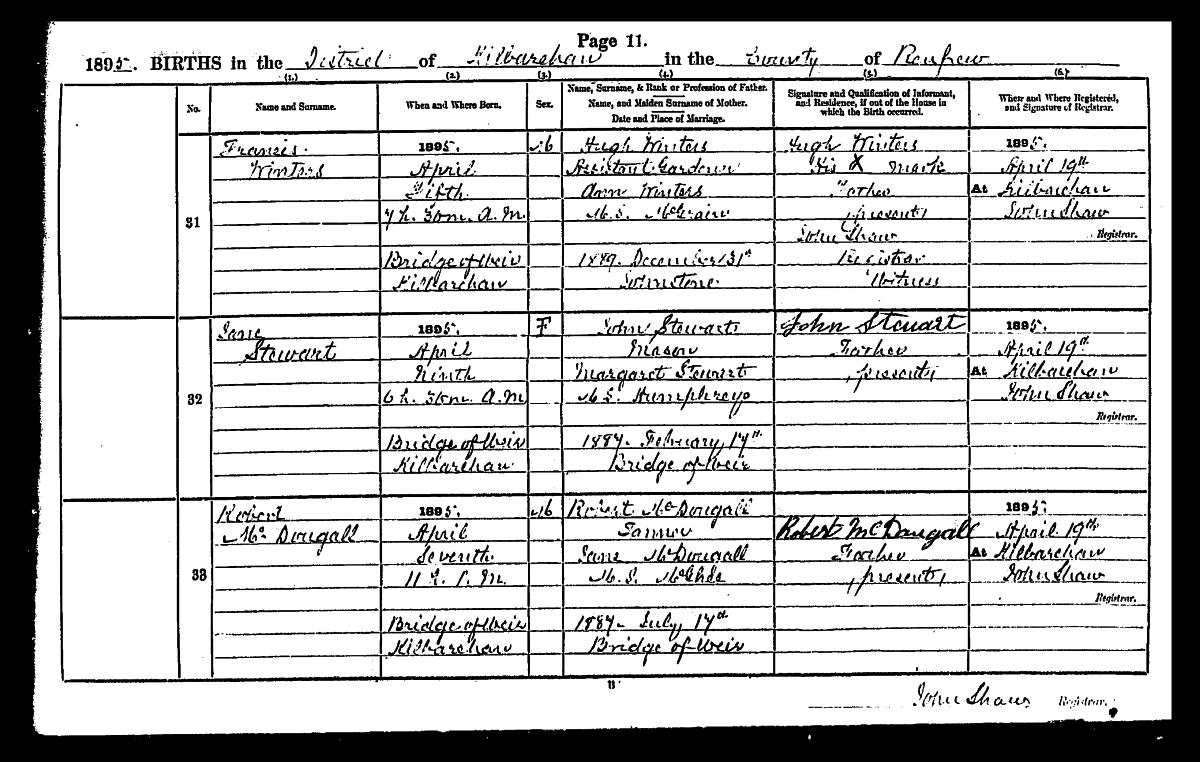 Page 11.
1895. BIRTHS in the District of Kilbarchan in the County of Renfrew
(1.) (2.) (3.) (4.) (5.) (6.)
No.
Name and Surname.
When and Where Born.
Sex.
Name, Surname, & Rank or Profession of Father.
Name, and Maiden Surname of Mother.
Date and Place of Marriage.
Signature and Qualification of Informant,
and Residence, if out of the House in
which the Birth occurred.
When and Where Registered,
and Signature of Registrar.
31
Francis
Winters
1895.
April
Fifth
7 h. 30 m. A.M.
Bridge of Weir
Kilbarchan
M
Hugh Winters
Assistant Gardener
Ann Winters
M.S. McGrain
1889. December 31st
Johnstone
Hugh Winters
His X mark
Father
(present)
John Shaw
Registrar
Witness
1895.
April 19th
At Kilbarchan
John Shaw
Registrar.
32
Jane
Stewart
1895.
April
Ninth
6 h. 30 m. A.M.
Bridge of Weir
Kilbarchan
F
John Stewart
Mason
Margaret Stewart
M.S. Humphreys
1887. February 17th
Bridge of Weir
John Stewart
Father
(present)
1895.
April 19th
At Kilbarchan
John Shaw
Registrar.
33
Robert
McDougall
1895.
April
Seventh
11 h. P.M.
Bridge of Weir
Kilbarchan
M
Robert McDougall
Tanner
Jane McDougall
M.S. McGhee
1887. July 17th
Bridge of Weir
Robert McDougall
Father
(present)
1895.
April 19th
At Kilbarchan
John Shaw
Registrar.
11
John Shaw Registrar.